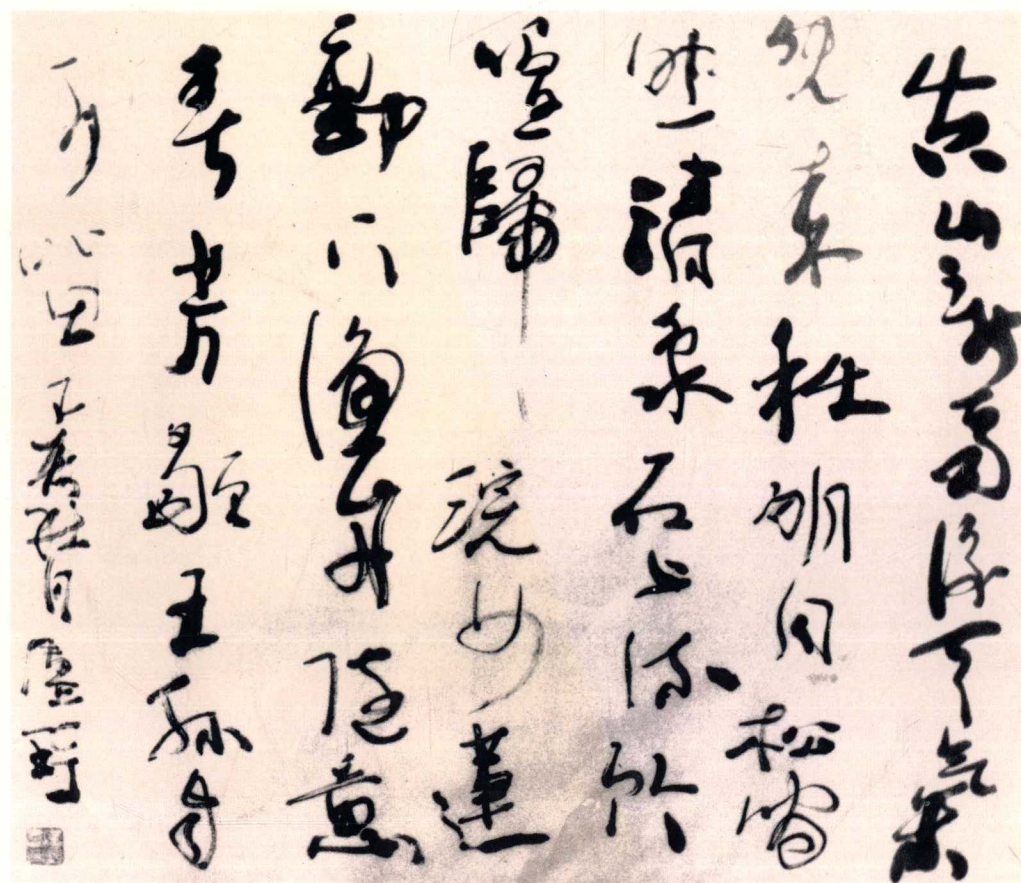 空山新雨後天氣
晚來秋明月松間
照清泉石上流竹
喧歸浣女蓮
動下漁舟隨意
春芳歇王孫自
可留